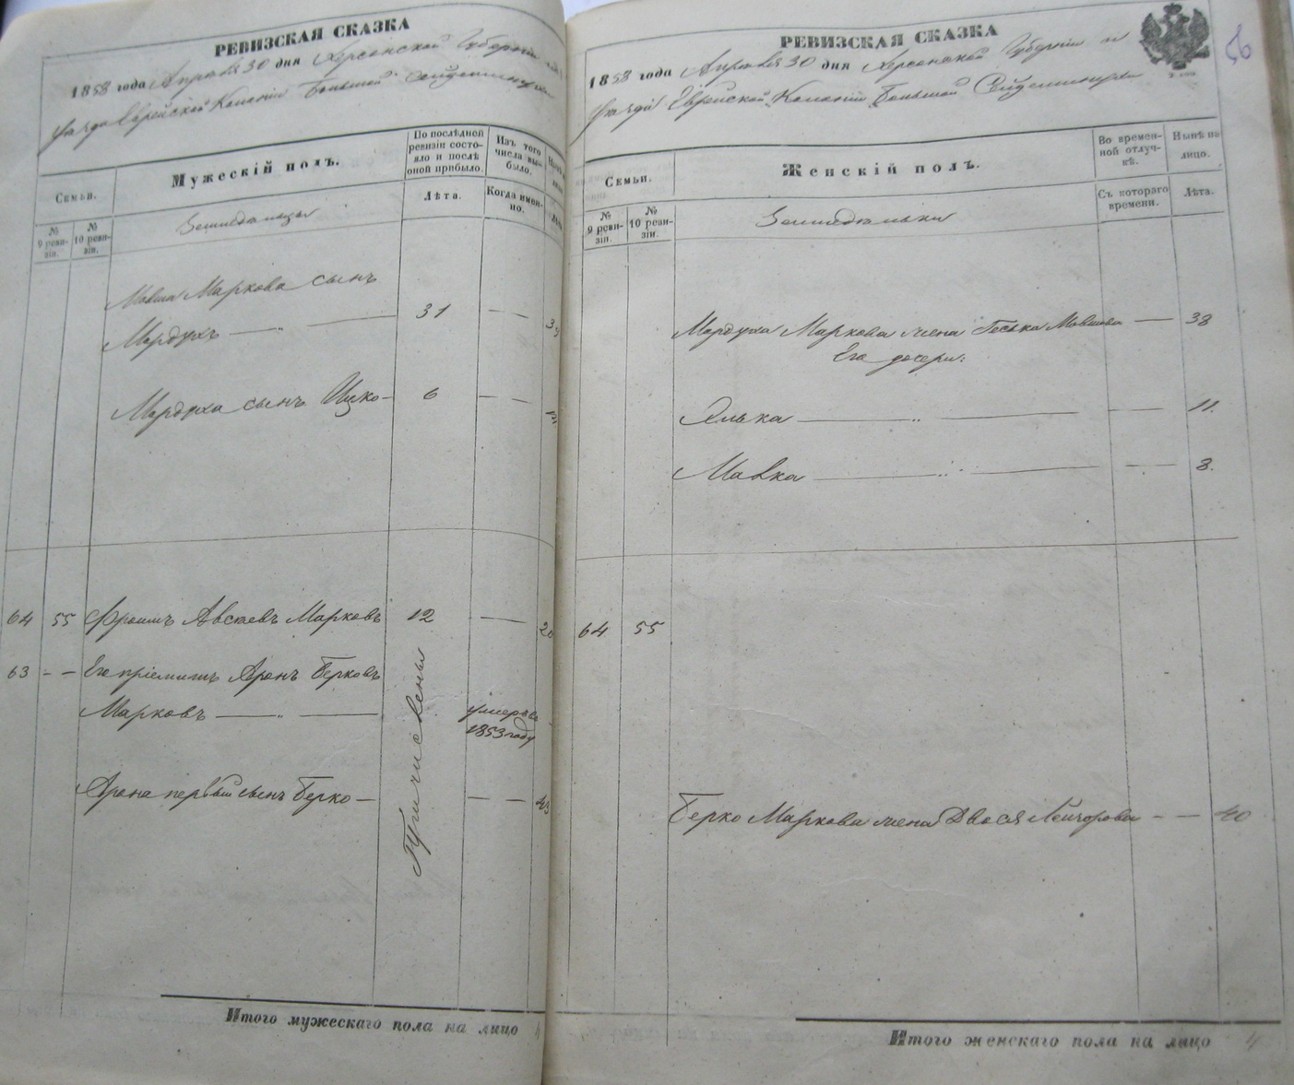 РЕВИЗСКАЯ СКАЗКА
1858 года Апреля 30 дня Херсонской Губернии
уезда Еврейской Колонии Большой Сейдеминухи
Семьи.
Мужескій полъ.
По послѣдней ревизіи состояло и послѣ оной прибыло.
Изъ того числа выбыло.
Лѣта.
Когда именно.
№ 9 ревизіи.
№ 10 ревизіи.
Земледельцы
Мавша Маркова сынъ
Мордухъ 31 — —
Мордуха сынъ Ицко 6 — —
64 55 Фроимъ Авсеевъ Марковъ 12 — —
63 — — Его пріемышъ Аронъ Берковъ
Марковъ умеръ въ 1853 году
Причисленъ
Арона первый сынъ Берко — —
Итого мужескаго пола на лицо
РЕВИЗСКАЯ СКАЗКА
56
1858 года Апреля 30 дня Херсонской Губерніи и
уезда Еврейской Колоніи Большой Сейдеминухи
Семьи.
Женскій полъ.
Во временной отлучкѣ.
Нынѣ на лицо.
Съ котораго времени.
Лѣта.
№ 9 ревизіи.
№ 10 ревизіи.
Земледельки
Мордуха Маркова жена Геська Мавшова — 38
Его дочери:
Элька — — 11.
Мавка — — 8.
64 55
Берко Маркова жена Двося Лейзорова — — 40
Итого женскаго пола на лицо 4